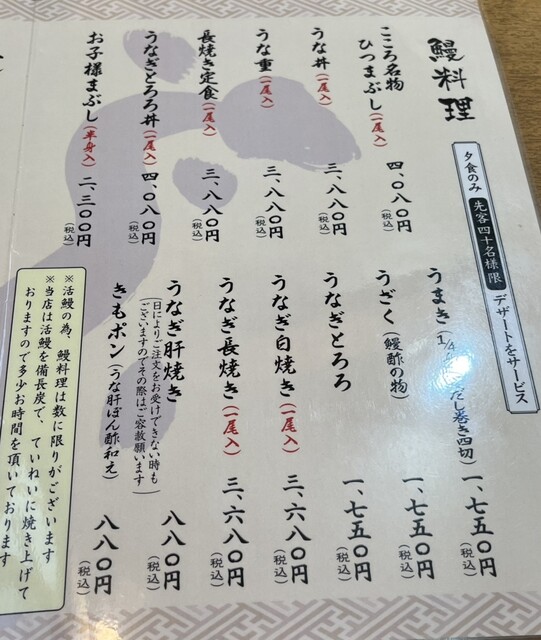 鰻料理
夕食のみ 先客四十名様限 デザートをサービス
こころ名物
ひつまぶし(一尾入) 四、〇八〇円(税込)
うな丼(一尾入) 三、八八〇円(税込)
うな重(一尾入) 三、八八〇円(税込)
長焼き定食(一尾入) 三、八八〇円(税込)
うなぎとろろ丼(一尾入) 四、〇八〇円(税込)
お子様まぶし(半身入) 二、三〇〇円(税込)
うまき(1/4 だし巻き四切) 一、七五〇円(税込)
うざく(鰻酢の物) 一、七五〇円(税込)
うなぎとろろ 一、七五〇円(税込)
うなぎ白焼き(一尾入) 三、六八〇円(税込)
うなぎ長焼き(一尾入) 三、六八〇円(税込)
うなぎ肝焼き 八八〇円(税込)
(日によりご注文をお受けできない時も
ございますのでその際はご容赦願います)
きもポン(うな肝ぽん酢和え) 八八〇円(税込)
※活鰻の為、鰻料理は数に限りがございます
※当店は活鰻を備長炭で、ていねいに焼き上げて
おりますので多少お時間を頂いております